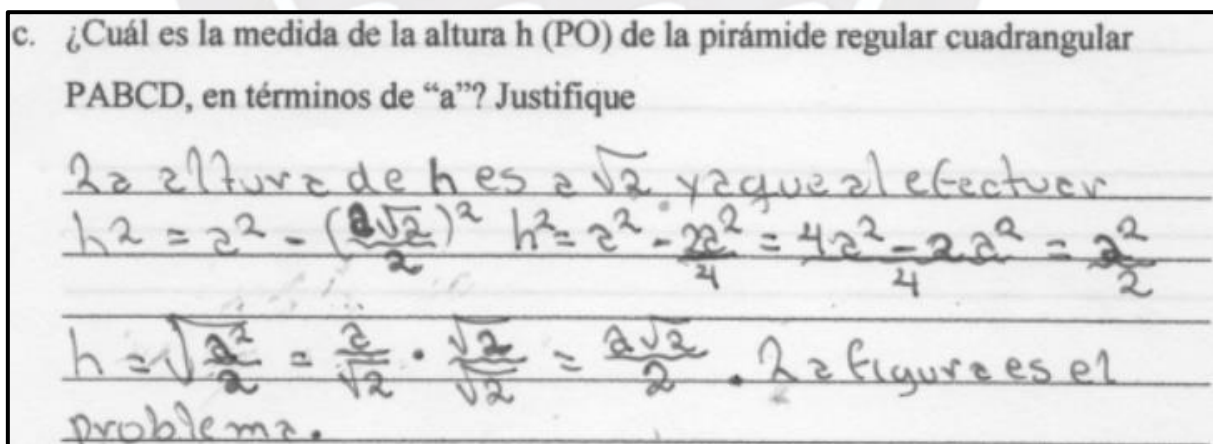 c. ¿Cuál es la medida de la altura h (PO) de la pirámide regular cuadrangular
PABCD, en términos de “a”? Justifique
La altura de h es a√2 ya que al efectuar
h² = a² - (a√2/2)² h² = a² - 2a²/4 = 4a² - 2a²/4 = a²/2
h = √(a²/2) = a/√2 · √2/√2 = a√2/2 . La figura es el
problema.